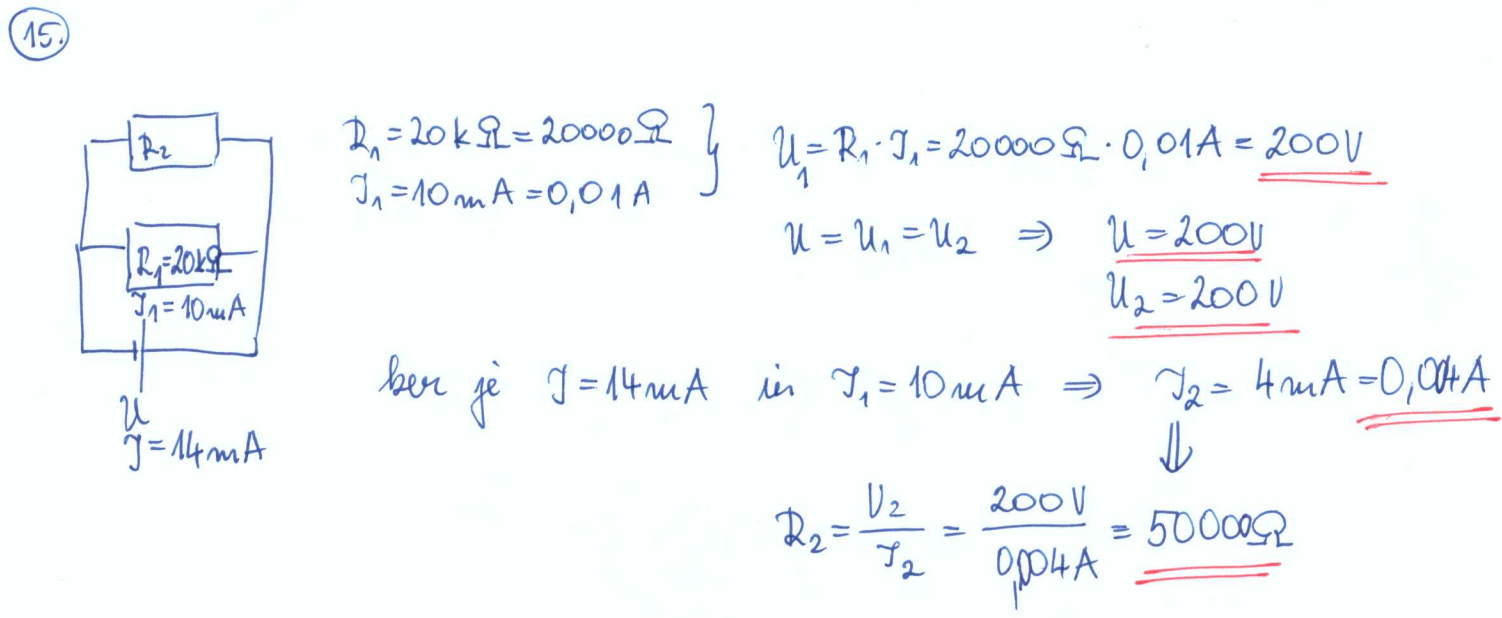 15.
R₂
R₁=20kΩ
I₁=10mA
U
I=14mA
R₁=20kΩ=20000Ω
I₁=10mA=0,01A
U₁=R₁·I₁=20000Ω·0,01A=200V
U=U₁=U₂ ⇒ U=200V
U₂=200V
ker je I=14mA in I₁=10mA ⇒ I₂=4mA=0,004A
⇓
R₂=U₂/I₂=200V/0,004A=50000Ω